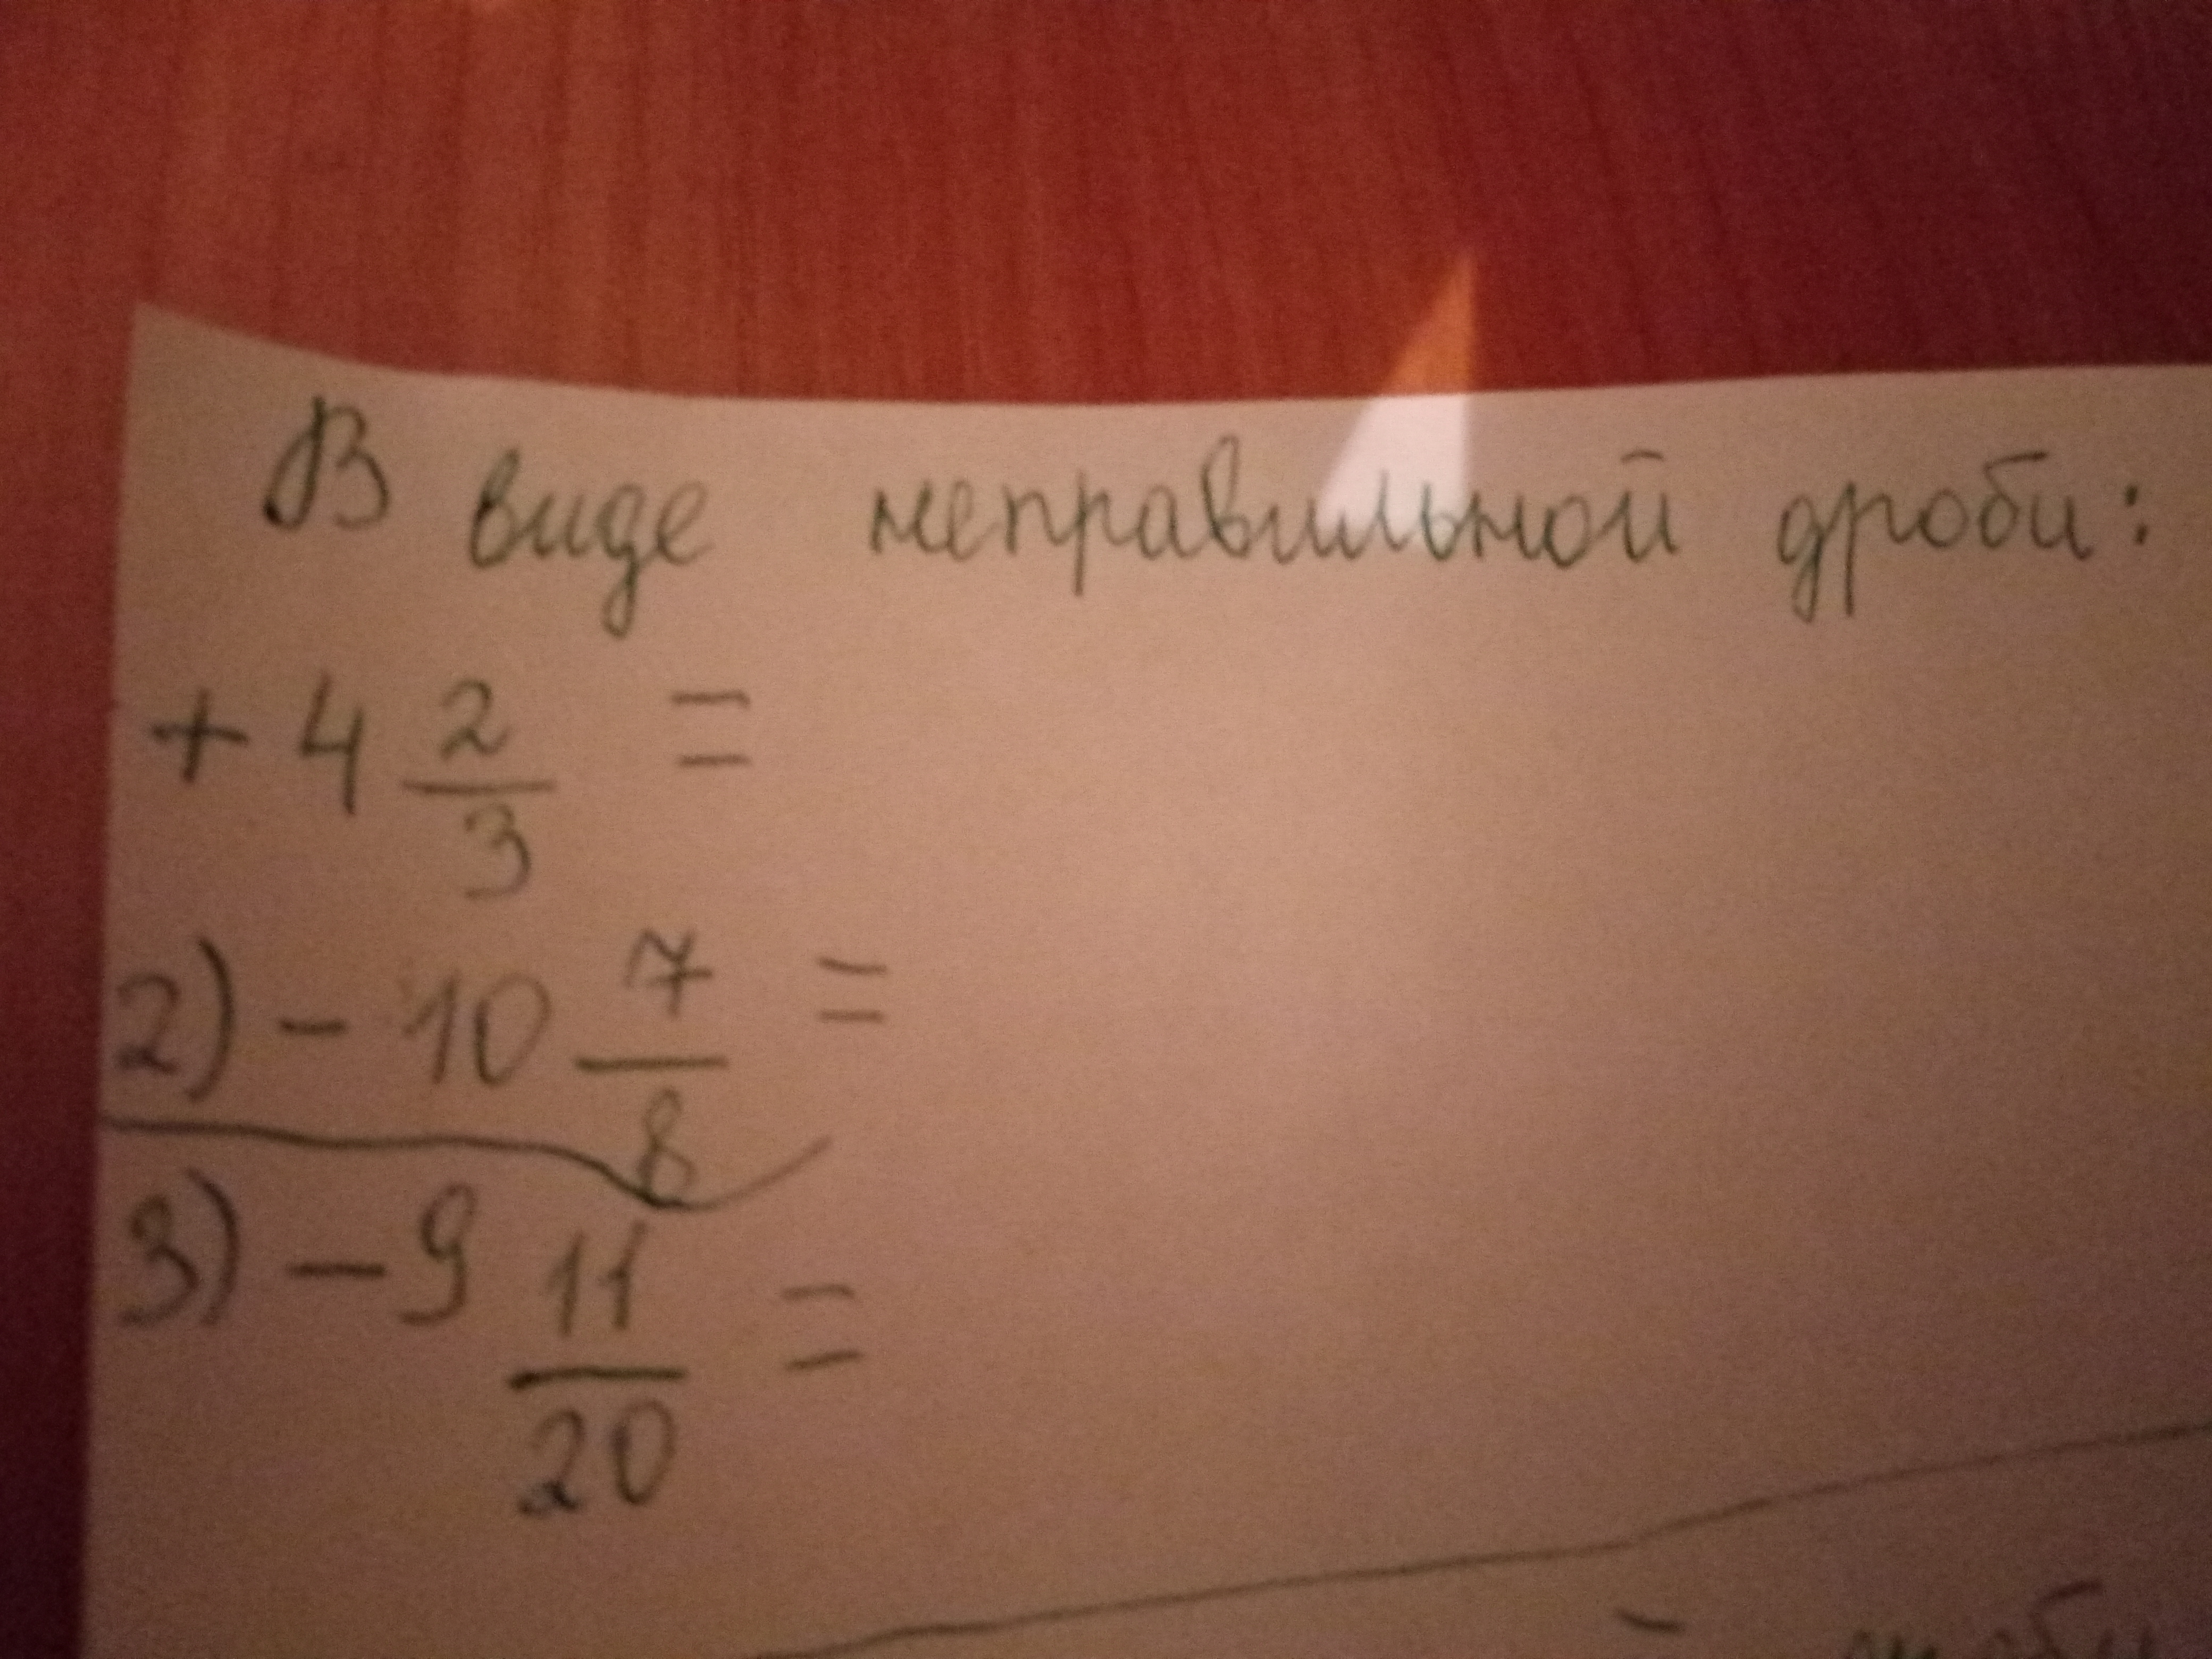 В виде неправильной дроби:
+ 4 2/3 =
2) - 10 7/8 =
3) - 9 11/20 =